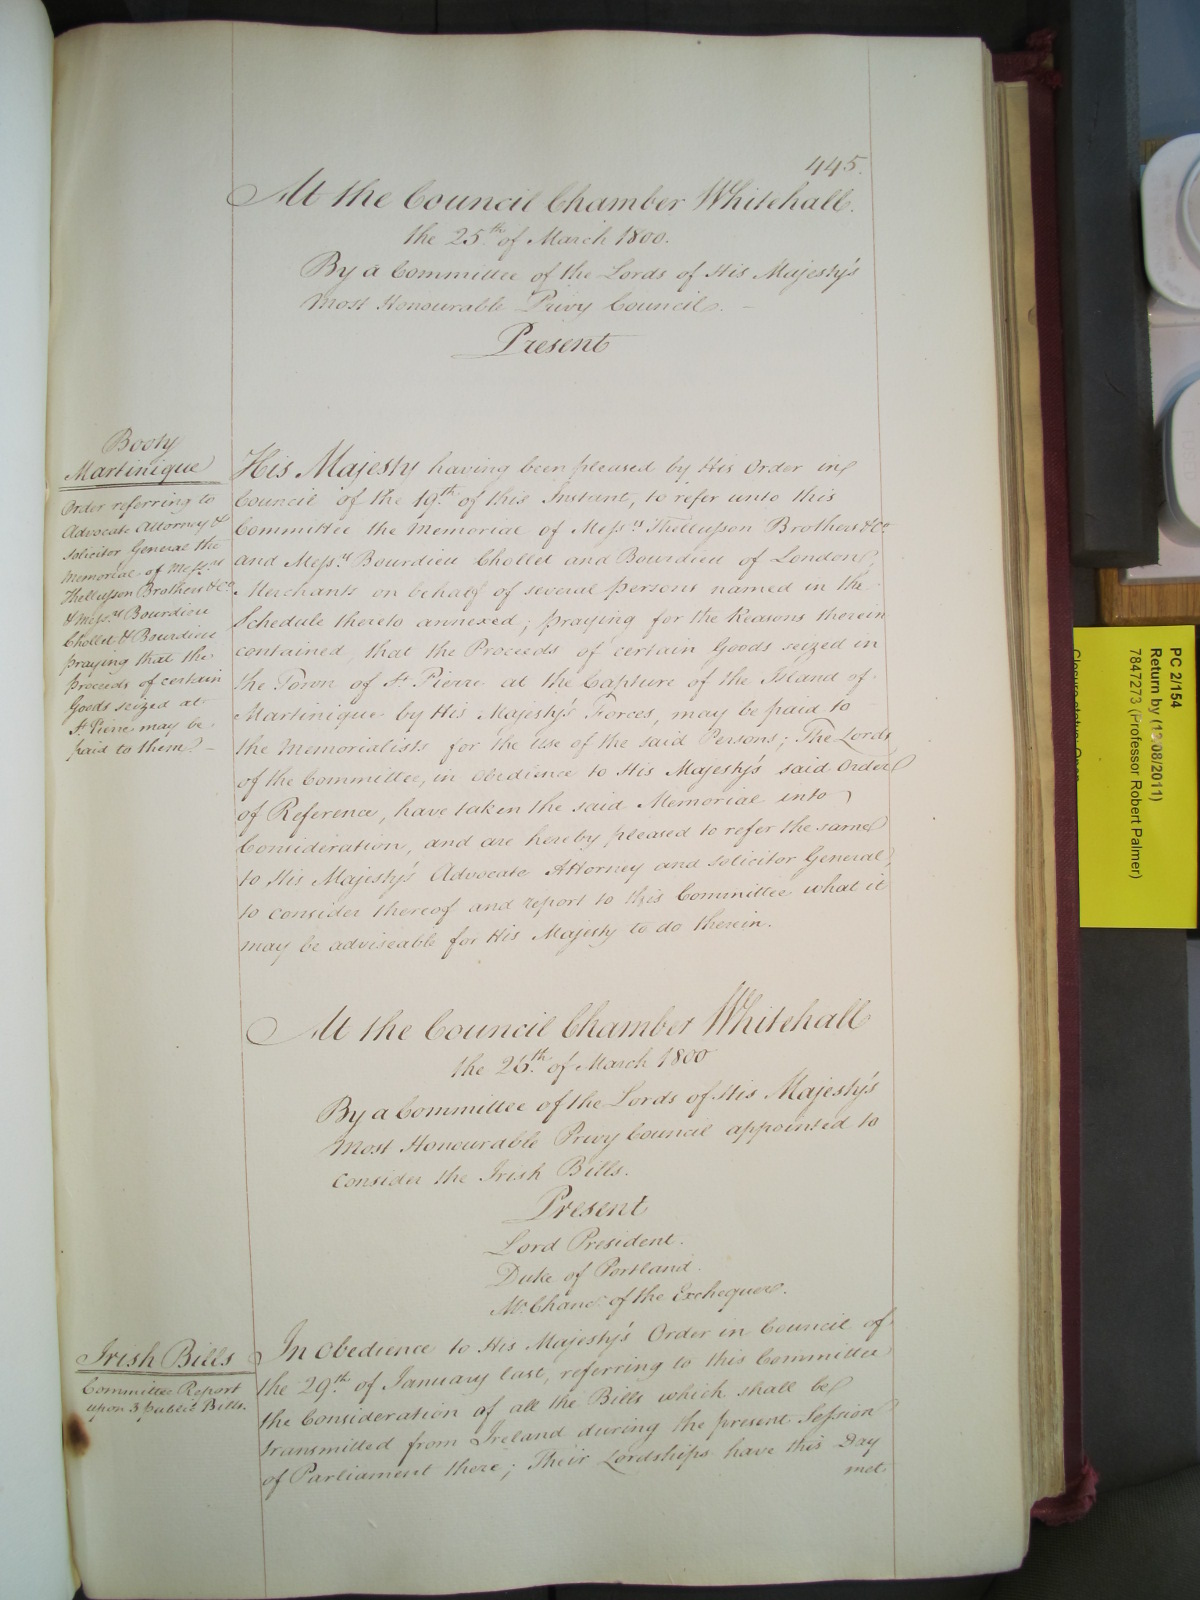 445.
At the Council Chamber Whitehall.
the 25.th of March 1800.
By a Committee of the Lords of His Majesty's
Most Honourable Privy Council. -
Present
Booty
Martinique
Order referring to
Advocate Attorney &
Solicitor General the
Memorial of Mess.rs
Thellusson Brothers & Co.
& Mess.rs Bourdieu
Chollet & Bourdieu
praying that the
proceeds of certain
Goods seized at
St. Pierre may be
paid to them. -
His Majesty having been pleased by His Order in
Council of the 19.th of this Instant, to refer unto this
Committee the Memorial of Mess.rs Thellusson Brothers & Co.
and Mess.rs Bourdieu Chollet and Bourdieu of London,
Merchants on behalf of several Persons named in the
Schedule thereto annexed; praying for the Reasons therein
contained, that the Proceeds of certain Goods seized in
the Town of St. Pierre at the Capture of the Island of
Martinique by His Majesty's Forces, may be paid to
the Memorialists for the Use of the said Persons; The Lords
of the Committee, in obedience to His Majesty's said Order
of Reference, have taken the said Memorial into
Consideration, and are hereby pleased to refer the same
to His Majesty's Advocate Attorney and Solicitor General,
to consider thereof and report to this Committee what it
may be adviseable for His Majesty to do therein.
At the Council Chamber Whitehall
the 26.th of March 1800
By a Committee of the Lords of His Majesty's
Most Honourable Privy Council appointed to
consider the Irish Bills.
Present
Lord President.
Duke of Portland.
Mr. Chanc.r of the Exchequer.
Irish Bills
Committee Report
upon 3 public Bills.
In Obedience to His Majesty's Order in Council of
the 29.th of January last, referring to this Committee
the Consideration of all the Bills which shall be
transmitted from Ireland during the present Session
of Parliament there; Their Lordships have this Day
met
PC 2/154
Return by (12/08/2011)
7847273 (Professor Robert Palmer)
Closure status: Open